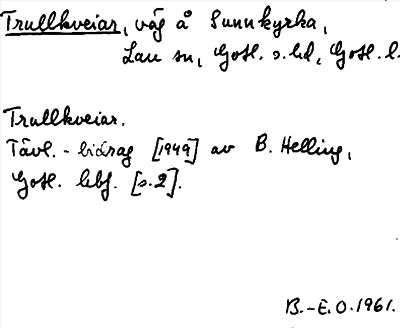 Trullkveiar, väg å Sunnkyrka,
Lau sn, Gotl. s. hd, Gotl. l.
Trullkveiar.
Tävl.-bidrag [1949] av B. Helling,
Gotl. lbf. [s. 2].
B.-E. O. 1961.